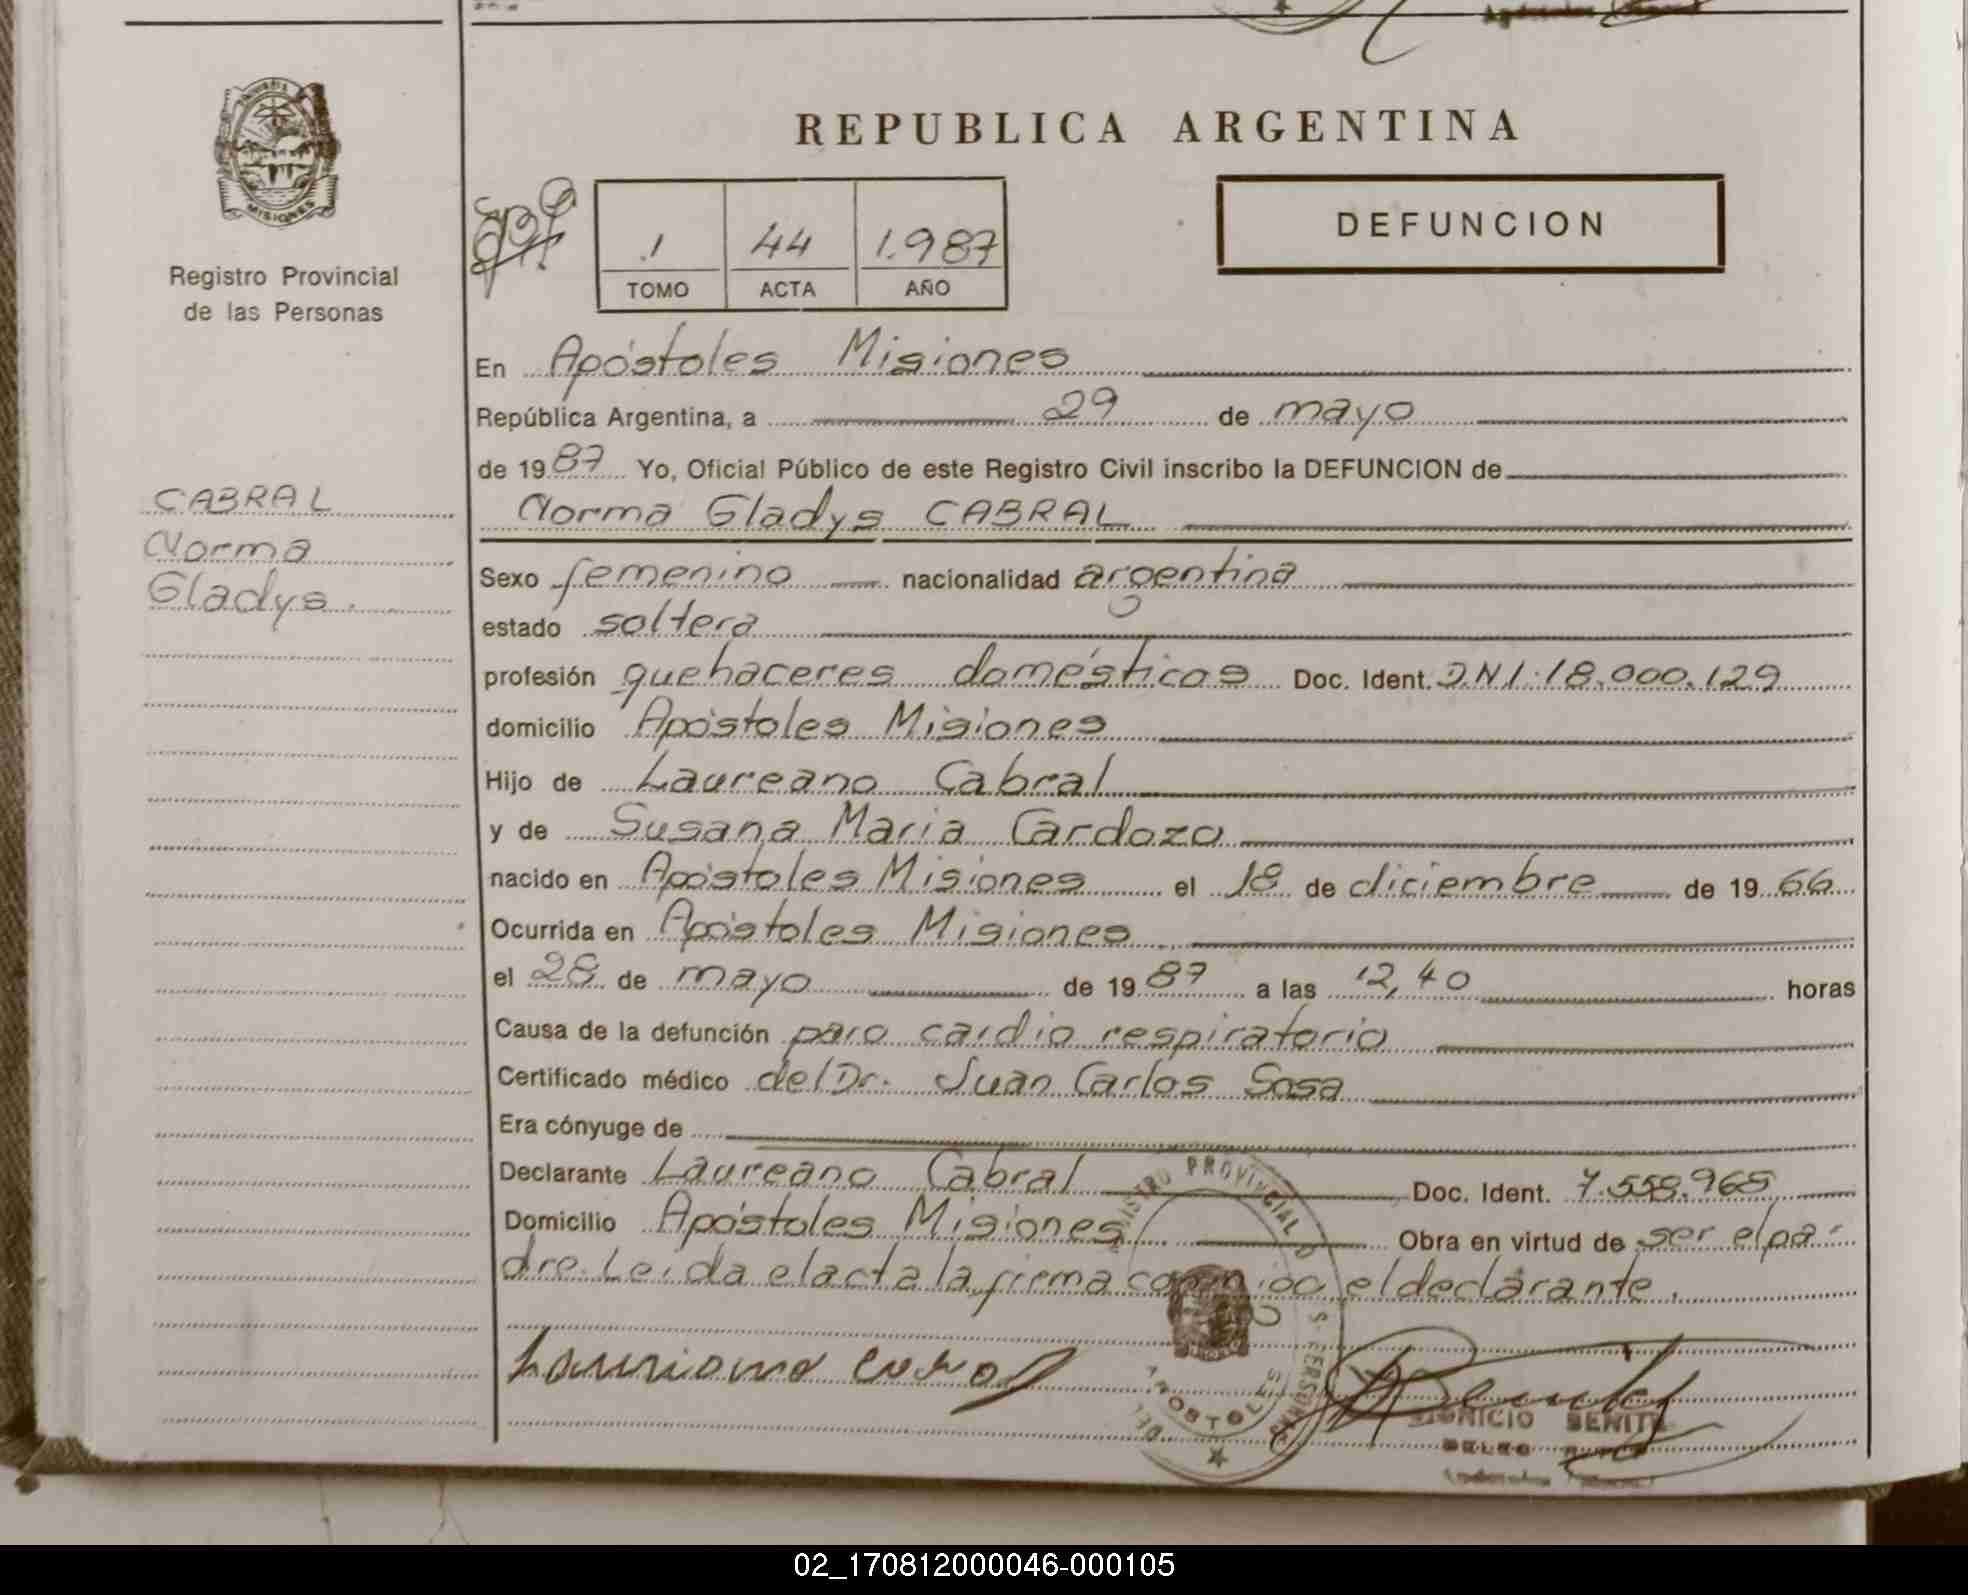 REPUBLICA ARGENTINA
MISIONES
Registro Provincial
de las Personas
.1 44 1.987
TOMO ACTA AÑO
DEFUNCION
CABRAL
Norma
Gladys.
En Apóstoles Misiones
República Argentina, a 29 de mayo
de 1987 Yo, Oficial Público de este Registro Civil inscribo la DEFUNCION de
Norma Gladys CABRAL
Sexo femenino nacionalidad argentina
estado soltera
profesión quehaceres domésticos Doc. Ident. D.N.I. 18.000.129
domicilio Apóstoles Misiones
Hijo de Laureano Cabral
y de Susana Maria Cardozo
nacido en Apóstoles Misiones el 18 de diciembre de 1966
Ocurrida en Apóstoles Misiones
el 28 de mayo de 1987 a las 12,40 horas
Causa de la defunción paro cardio respiratorio
Certificado médico del Dr. Juan Carlos Sosa
Era cónyuge de
Declarante Laureano Cabral Doc. Ident. 7.558.968
Domicilio Apóstoles Misiones Obra en virtud de ser el pa-
dre. Leida el acta la firma conmigo el declarante.
PROVINCIAL
APOSTOLES
DIONICIO BENITEZ
02_170812000046-000105